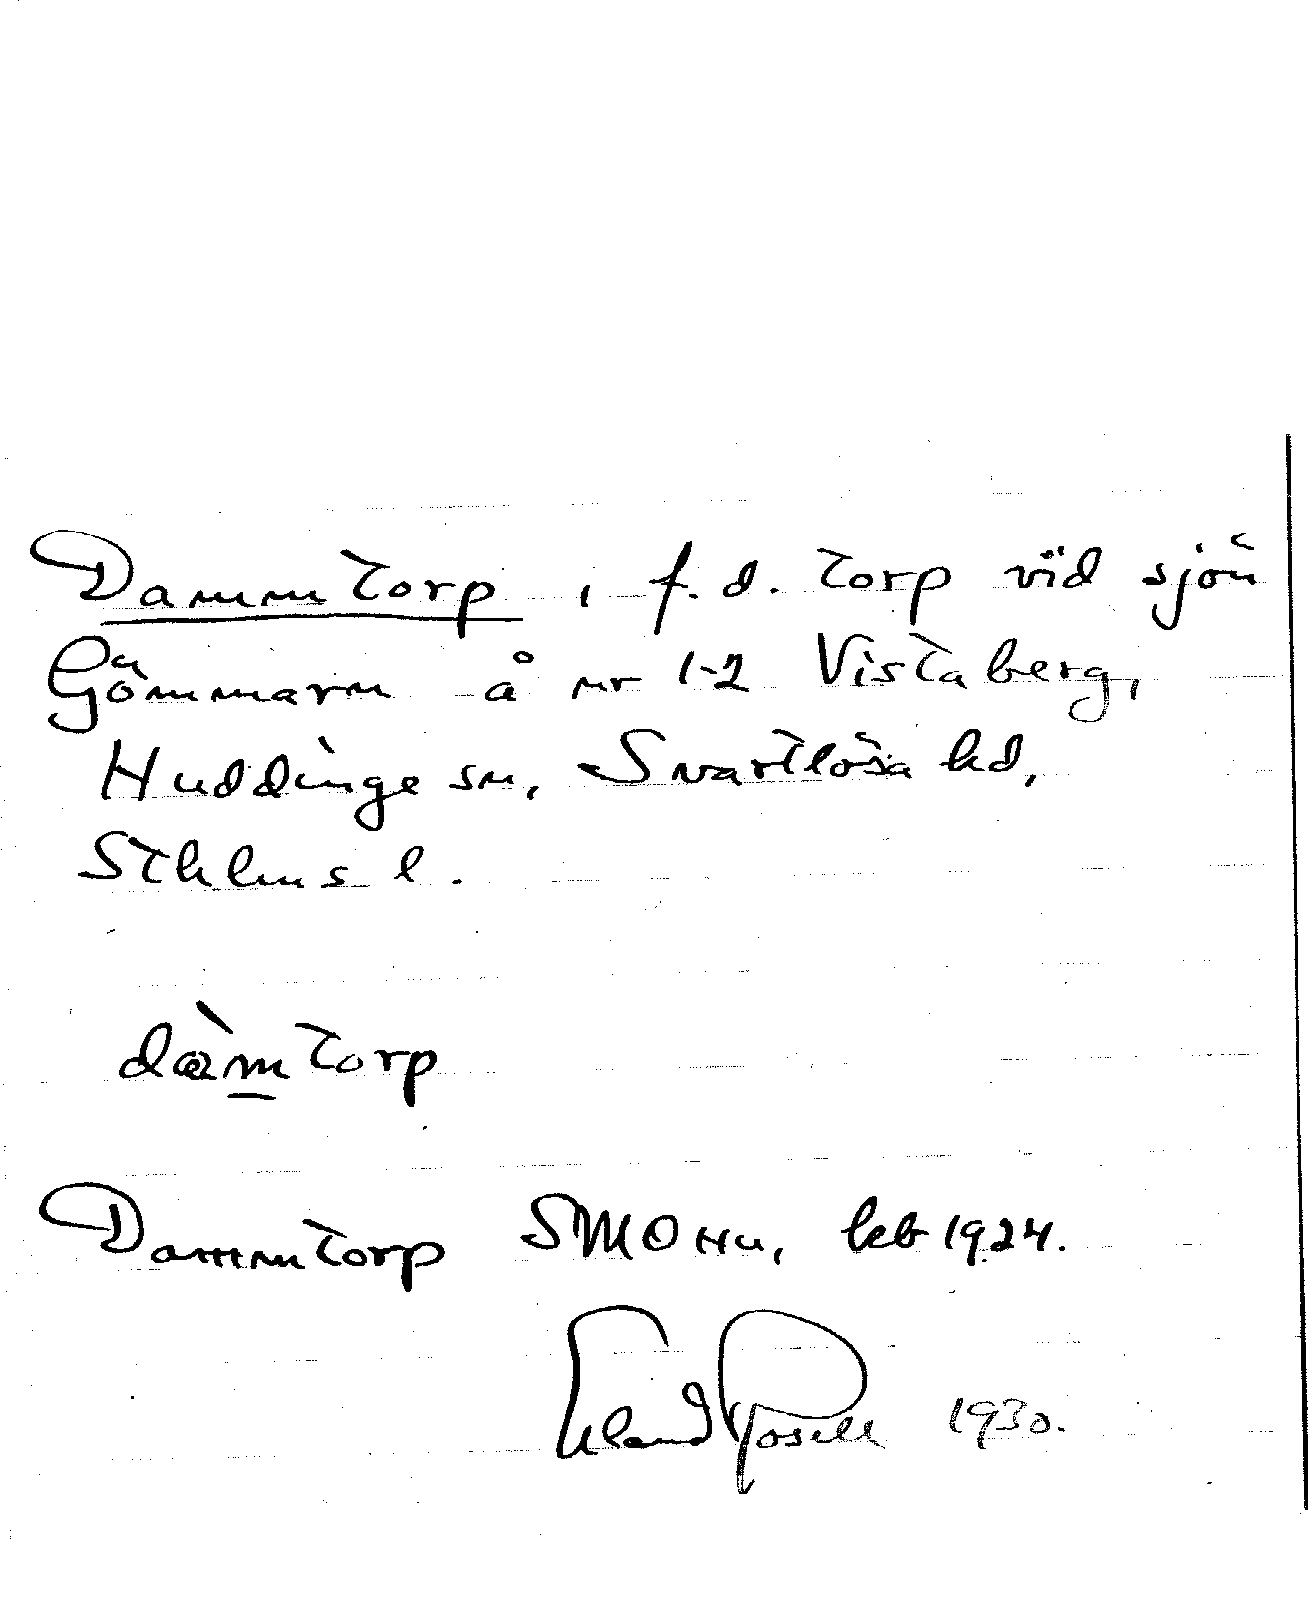 Dammtorp, f.d. torp vid sjön
Gömmarn å nr 1-2 Vistaberg,
Huddinge sn, Svartlösa hd,
Sthlms l.
dàmtorp
Dammtorp SMOHu, kb 1924.
Erland Rosell 1930.